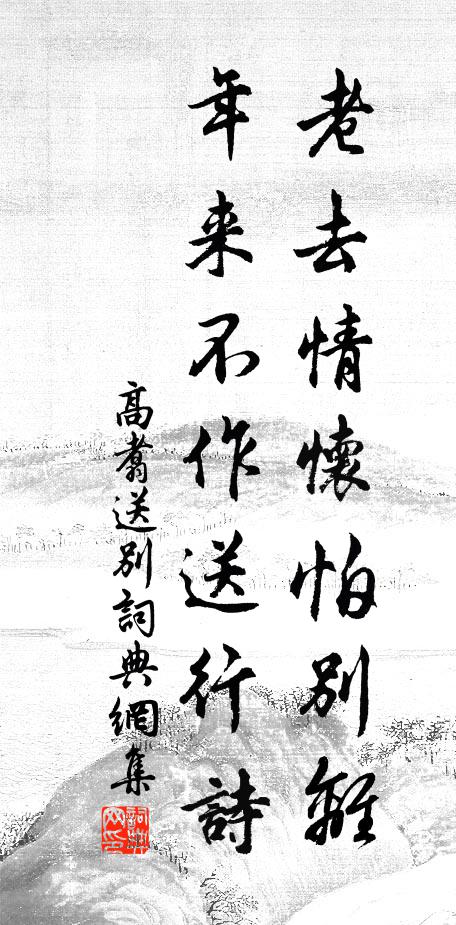 老去情懷怕別離
年来不作送行詩
高翥送別詞典網集